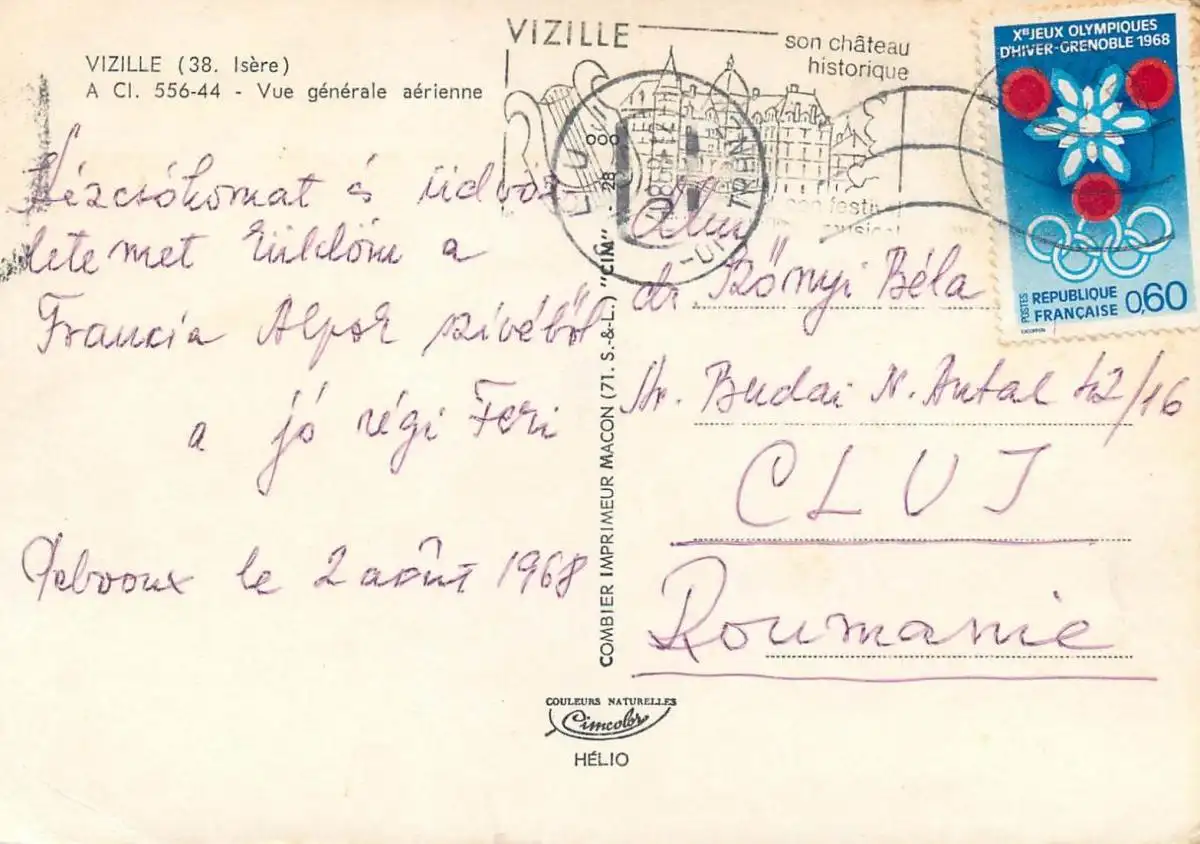 VIZILLE (38. Isère)
A CI. 556-44 - Vue générale aérienne
VIZILLE
son château
historique
son festival
musical
CLUJ
Xes JEUX OLYMPIQUES
D'HIVER-GRENOBLE 1968
POSTES
REPUBLIQUE
FRANÇAISE
0,60
Kézcsókomat és üdvöz
letemet küldöm a
Francia Alpok szívéből
a jó régi Feri
le 2 août 1968
COMBIER IMPRIMEUR MACON (71. S.-&-L.) "CIM"
dr Rőnyi Béla
str. Budai N. Antal 42/16
CLUJ
Roumanie
COULEURS NATURELLES
Cimcolor
HÉLIO